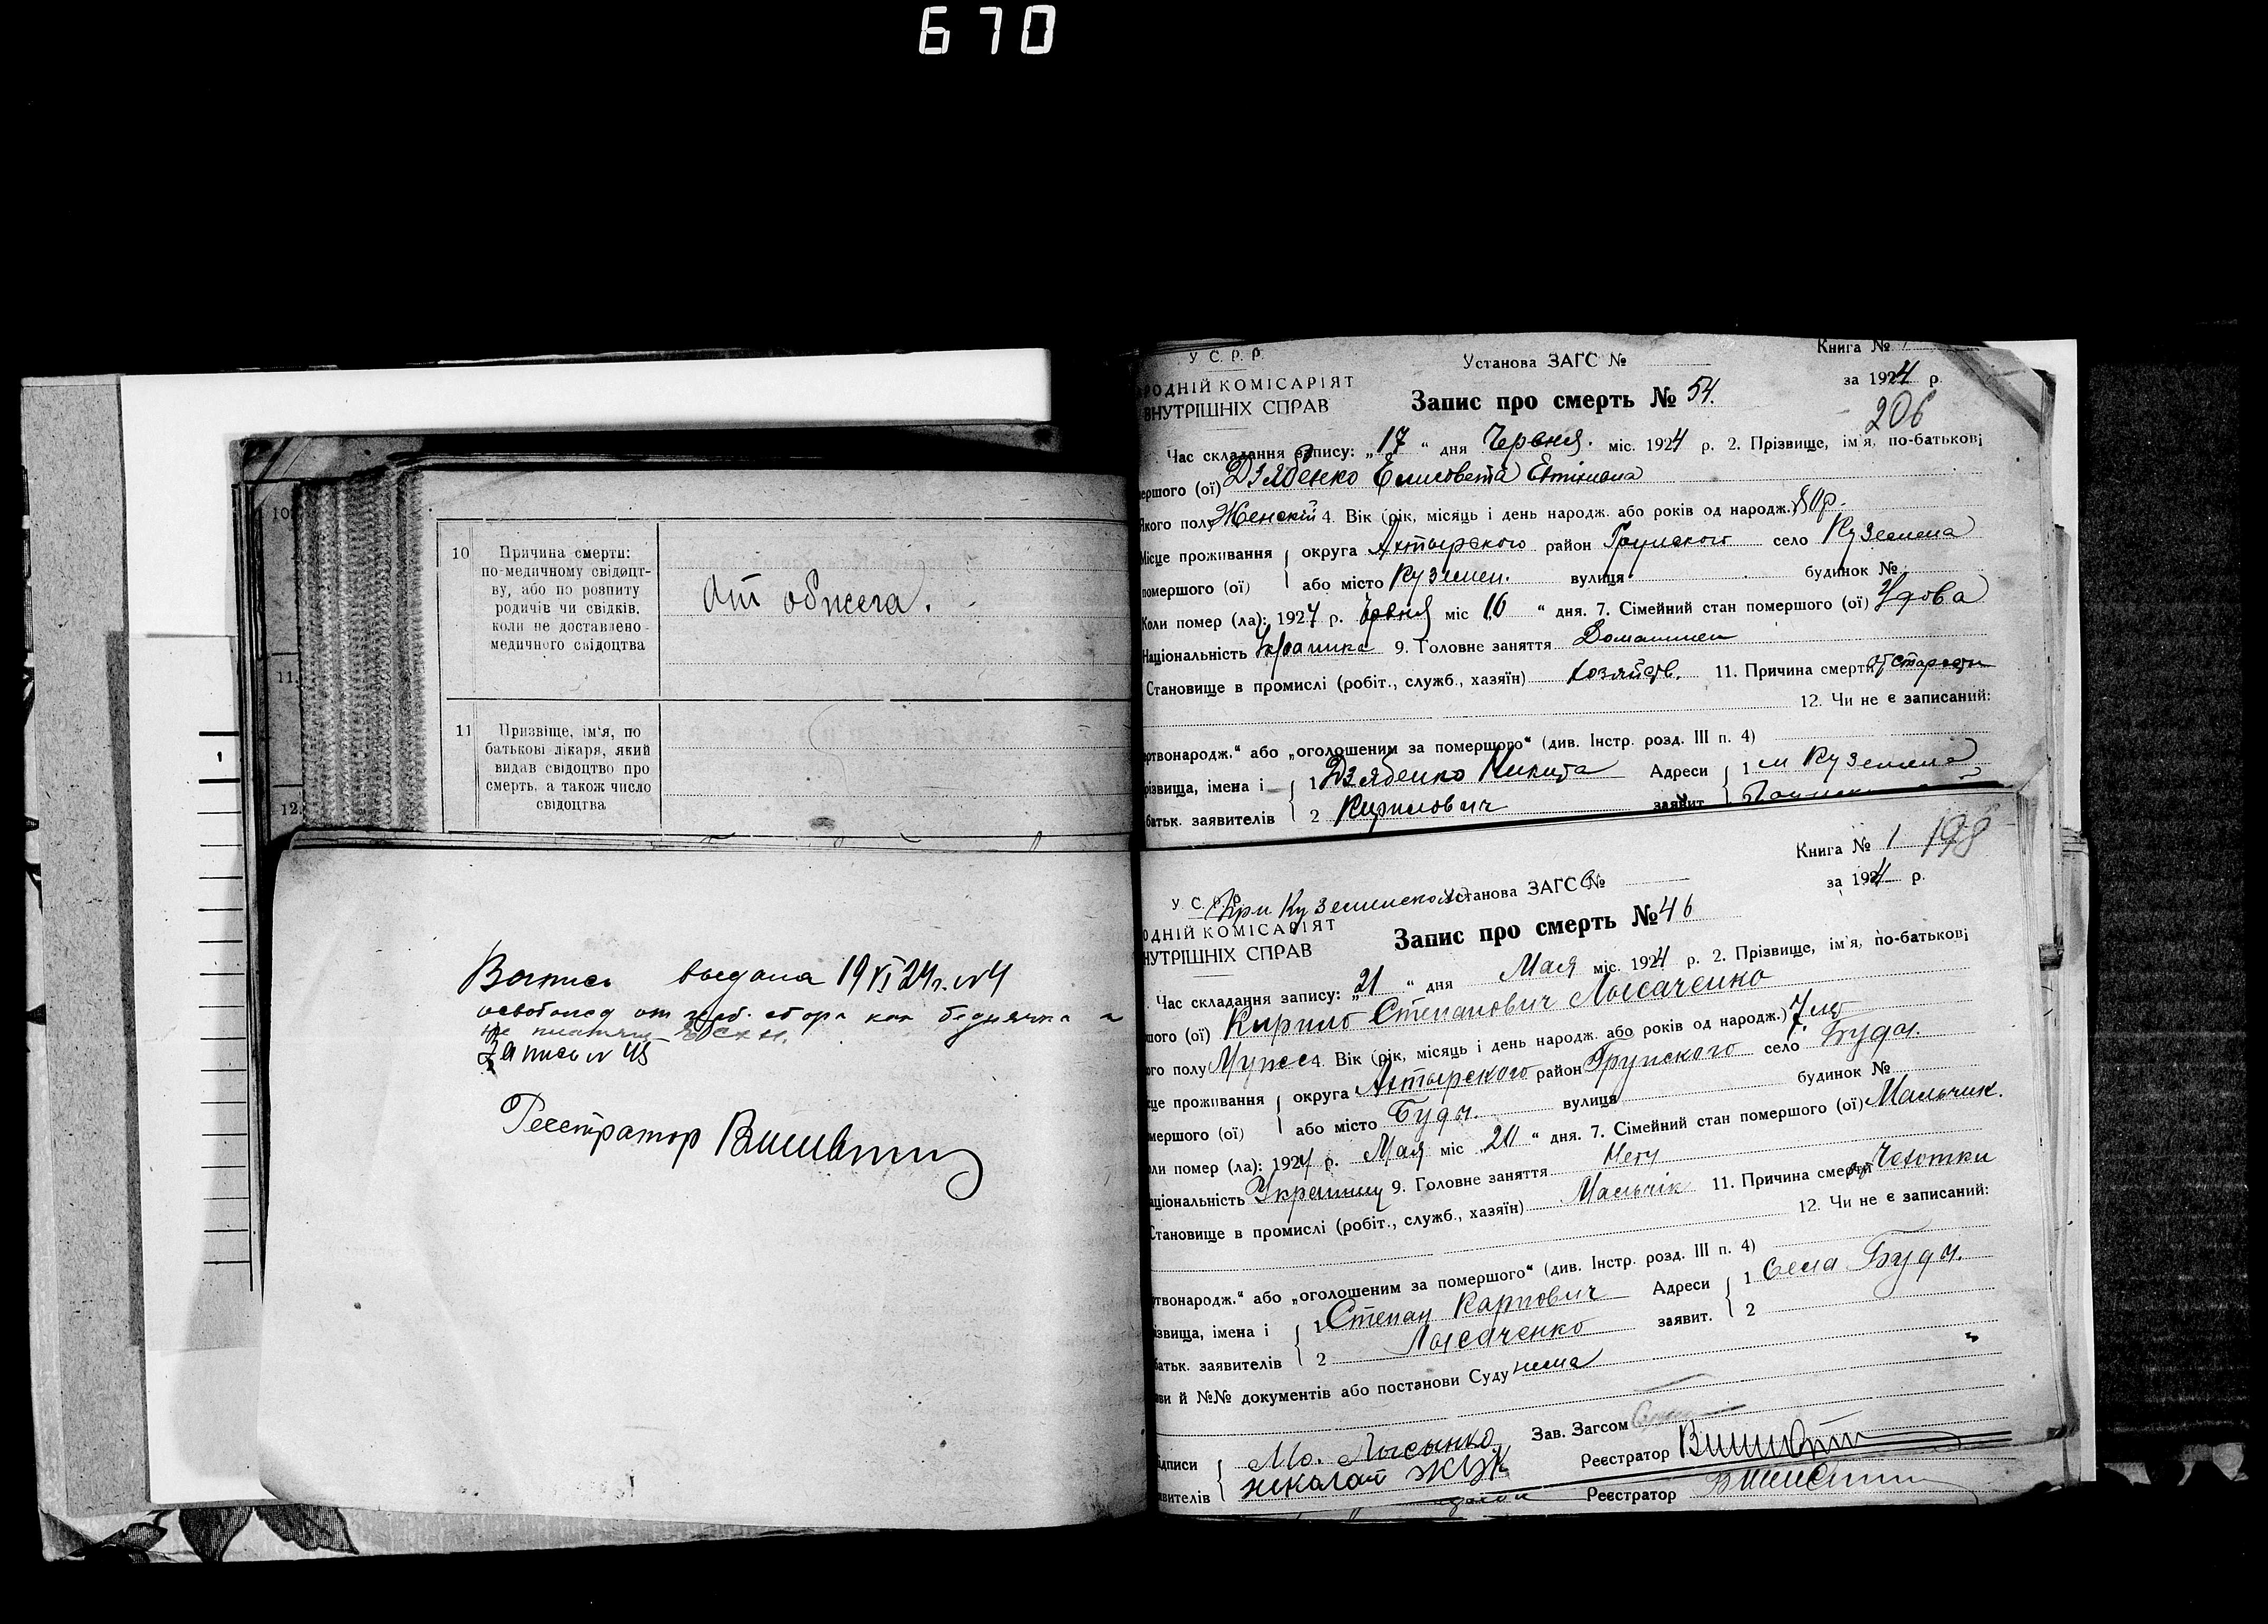 670
10
10
Причина смерти:
по-медичному свідоцт-
ву, або по розпиту
родичів чи свідків,
коли не доставлено
медичного свідоцтва
От обжега.
11
11
Призвіще, ім'я, по
батькові лікаря, який
видав свідоцтво про
смерть, а також число
свідоцтва
12
1
выдана 19 VI 24 г. №4
как беднячка
Запись № 45
Реестратор
У С. Р. Р.
Установа ЗАГС №
Книга №
РОДНІЙ КОМІСАРІЯТ
за 1924 р.
ВНУТРІШНІХ СПРАВ
Запис про смерть № 54.
206
Час складання запису: „17" дня Червня. міс. 1924 р. 2. Прізвище, ім'я, по-батькові
ершого (ої) Дзябенко Елисовета
Якого полу Женский 4. Вік (рік, місяць і день народж. або років од народж.) 80р.
Місце проживання округа Ахтырского район Грунского село Куземена
помершого (ої) або місто Куземен. вулиця будинок №
Коли помер (ла): 1924 р. Червня міс 16 " дня. 7. Сімейний стан помершого (ої) Удова
Національність 9. Головне заняття Домашнем
Становище в промислі (робіт., служб., хазяїн) хозяйств. 11. Причина смерти От старости
12. Чи не є записаний:
ртвонародж." або „оголошеним за помершого" (див. Інстр. розд. III п. 4)
різвища, імена і 1 Дзябенко Никита Адреси 1 м Куземена
батьк. заявителів 2 Кирилович заявит.
Книга № 1 198
У С. Р. Р. При Куземинском Установа ЗАГС №
за 1924 р.
ОДНІЙ КОМІСАРІЯТ
НУТРІШНІХ СПРАВ
Запис про смерть № 46
Час складання запису: „21 " дня Мая міс. 1924 р. 2. Прізвище, ім'я, по-батькові
шого (ої) Кирило Степанович Лысаченко
ого полу Мужс 4. Вік (рік, місяць і день народж. або років од народж.) 7 лет
сце проживання округа Ахтырского район Грунского село Буды.
мершого (ої) або місто Буды. вулиця будинок №
оли помер (ла): 1924 р. Мая міс 20 " дня. 7. Сімейний стан помершого (ої) Мальчик.
аціональність Украинец 9. Головне заняття Нету
Становище в промислі (робіт., служб., хазяїн) Мальчік 11. Причина смерти от Чехотки
12. Чи не є записаний:
ртвонародж." або „оголошеним за помершого" (див. Інстр. розд. III п. 4)
ізвища, імена і 1 Степан Карпович Адреси 1 Села Буды.
батьк. заявителів 2 Лысаченко заявит. 2
ви й №№ документів або постанови Суду нема
Зав. Загсом
ідписи
Реєстратор
явителів николай
Реєстратор